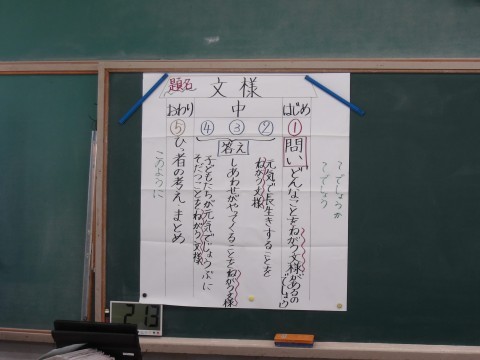 題名
文様
はじめ
中
おわり
①
②
③
④
⑤
~でしょうか
~でしょう
問い
どんなことをねがう文様があるの
でしょう
答え
元気で長生きすることを
ねがう文様
しあわせがやってくることをねがう文様
子どもたちが元気でじょうぶに
そだつことをねがう文様
ひっ者の考え
まとめ
このように